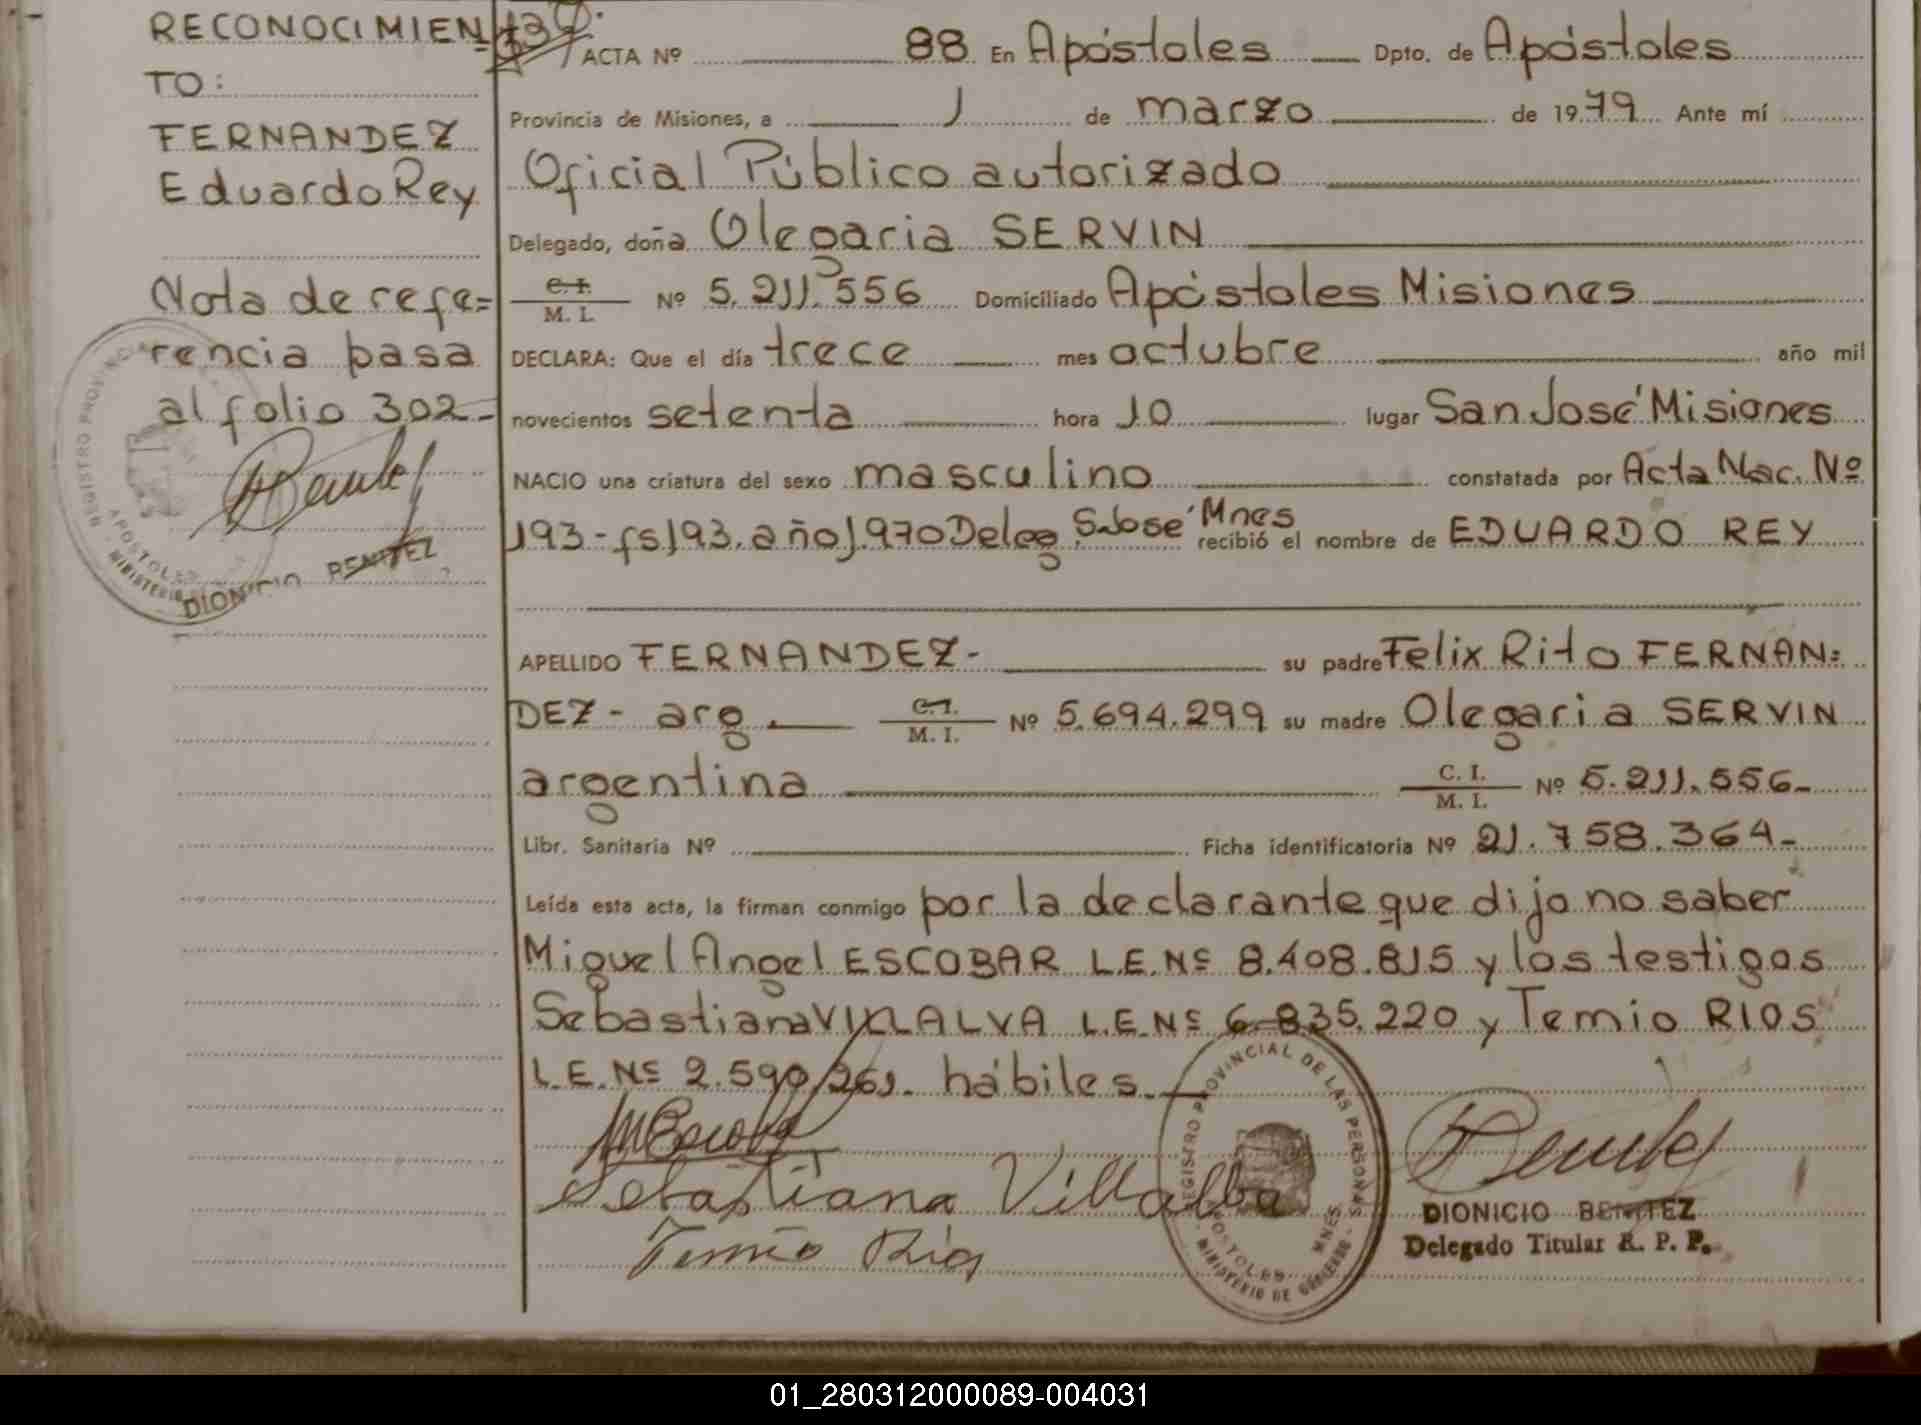 RECONOCIMIEN=
TO:
FERNANDEZ
Eduardo Rey
Nota de refe=
rencia pasa
al folio 302-
DIONICIO BENITEZ
ACTA Nº 88 En Apóstoles Dpto. de Apóstoles
Provincia de Misiones, a 1 de marzo de 1979 Ante mí
Oficial Público autorizado
Delegado, doña Olegaria SERVIN
C.I. / M. I. Nº 5.211.556 Domiciliado Apóstoles Misiones
DECLARA: Que el día trece mes octubre año mil
novecientos setenta hora 10 lugar San José Misiones
NACIO una criatura del sexo masculino constatada por Acta Nac. Nº
193-fs193.año1.970 Deleg S.José Mnes recibió el nombre de EDUARDO REY
APELLIDO FERNANDEZ- su padre Felix Rito FERNAN=
DEZ- arg. C.I. / M. I. Nº 5.694.299 su madre Olegaria SERVIN
argentina C. I. / M. I. Nº 5.211.556-
Libr. Sanitaria Nº Ficha identificatoria Nº 21.758.364-
Leída esta acta, la firman conmigo por la declarante que dijo no saber
Miguel Angel ESCOBAR L.E.Nº 8.408.815 y los testigos
Sebastiana VILLALVA L.E.Nº 6.835.220 y Temio RIOS
L.E.Nº 2.590.261. hábiles.
Sebastiana Villalba
Temio Rios
REGISTRO PROVINCIAL DE LAS PERSONAS
APOSTOLES MNES.
MINISTERIO DE GOBIERNO
DIONICIO BENITEZ
Delegado Titular R. P. P.
01_280312000089-004031